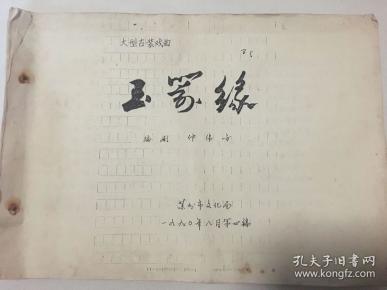 大型古装戏曲
玉 缘
编剧 仲伟
市文化局
一九九〇年八月第四稿
孔夫子旧书网